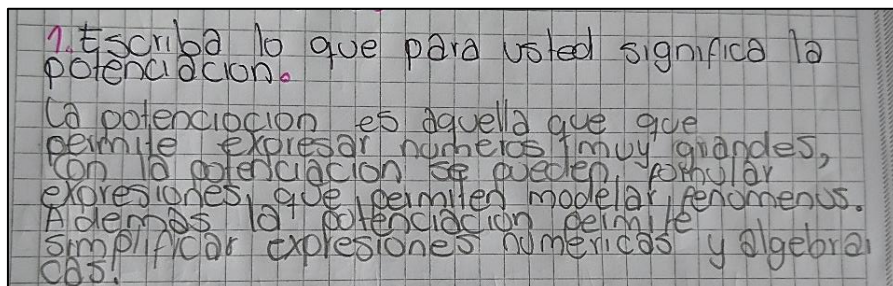 1. Escriba lo que para usted significa la
potenciacion.
La potenciocion es aquella que que
permite expresar numeros muy grandes,
con la potenciacion se pueden formular
expresiones, que permiten modelar fenomenos.
Ademas la potenciacion permite
simplificar expresiones numericas y algebrai
cas.